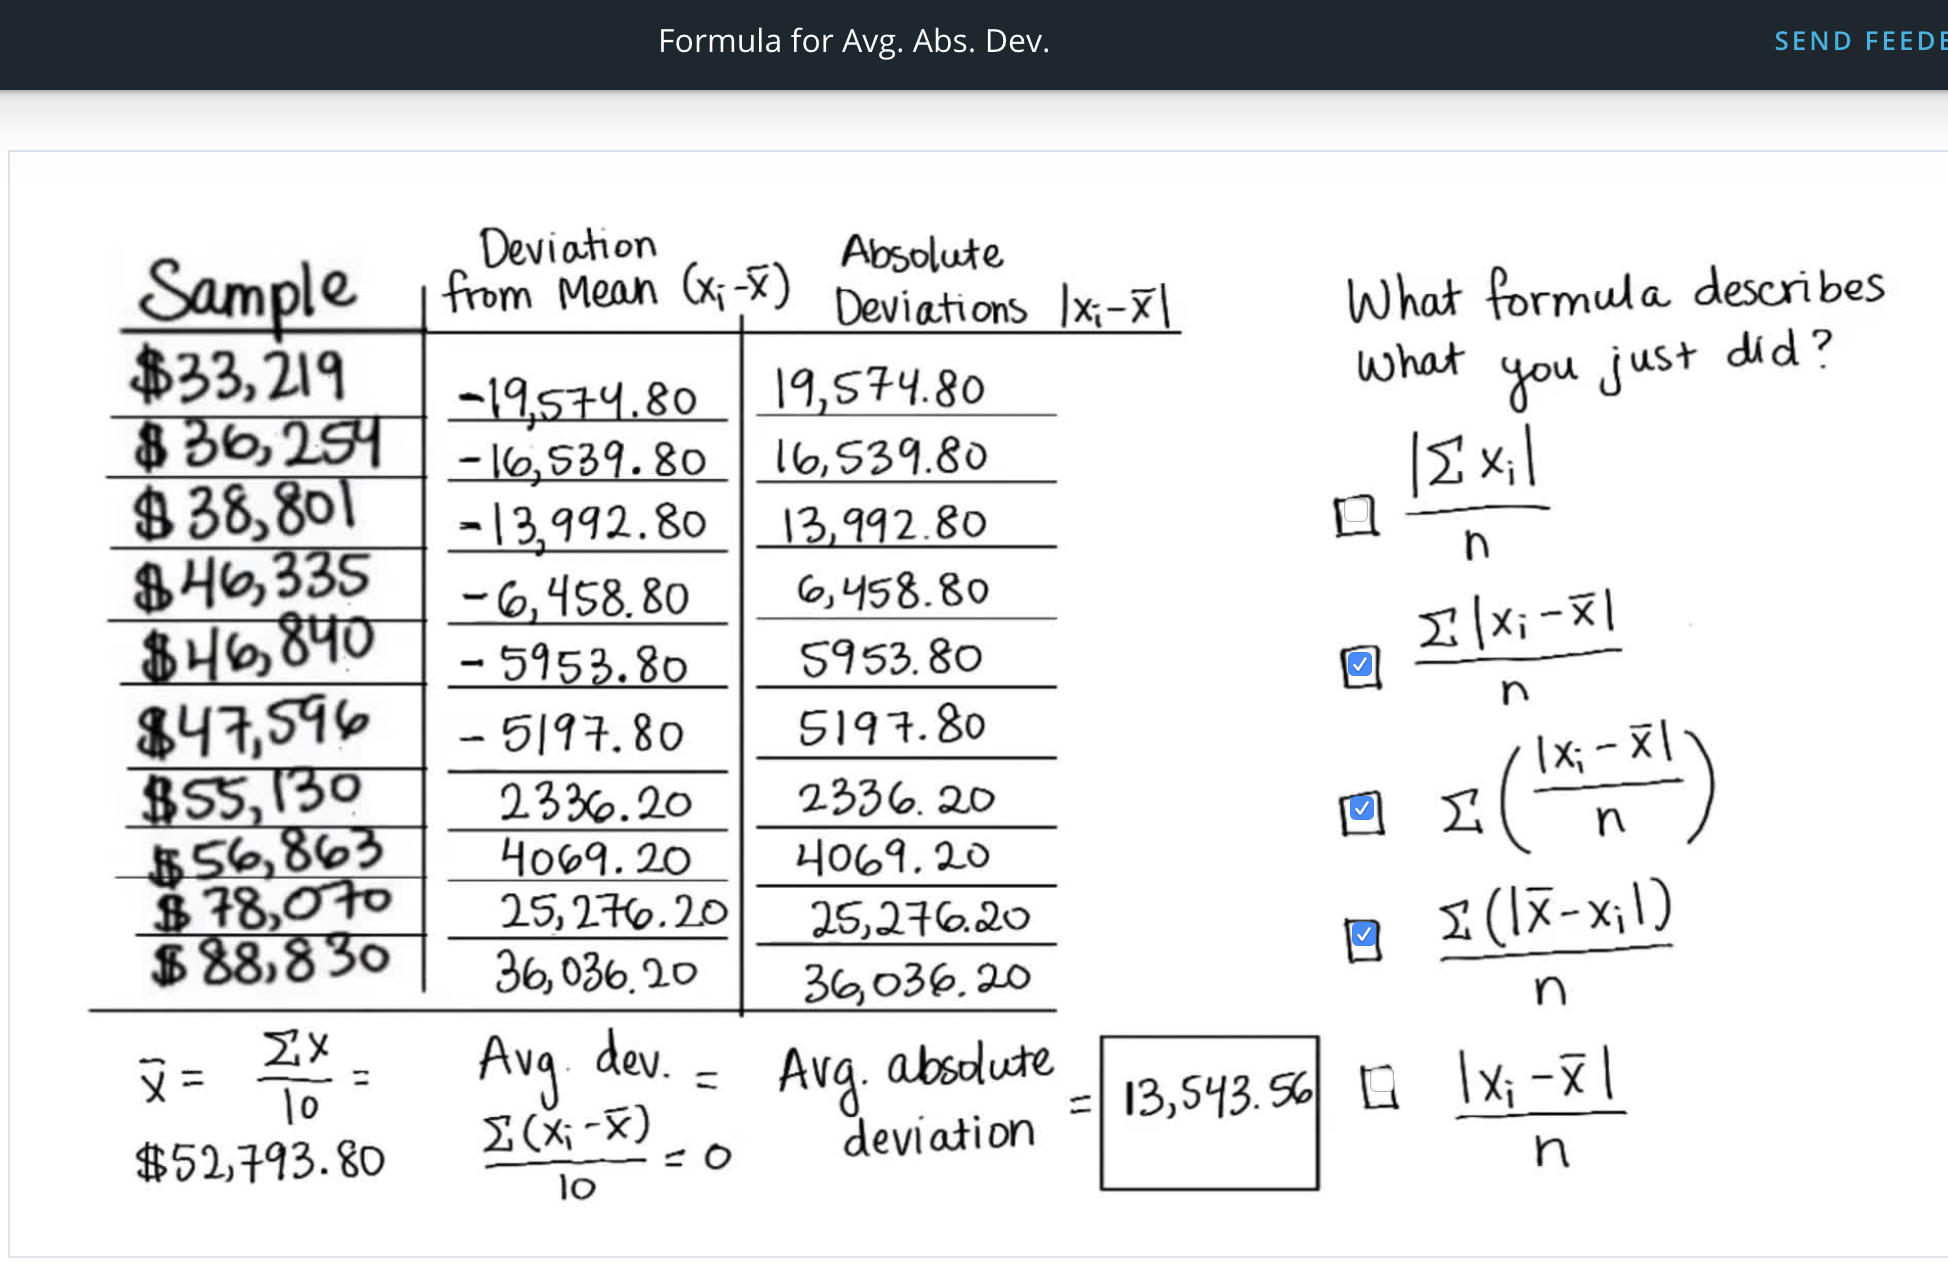 Formula for Avg. Abs. Dev.
SEND FEEDB
Sample
Deviation
from Mean (xᵢ-x̄)
Absolute
Deviations |xᵢ-x̄|
$33,219 -19,574.80 19,574.80
$36,254 -16,539.80 16,539.80
$38,801 -13,992.80 13,992.80
$46,335 -6,458.80 6,458.80
$46,840 -5953.80 5953.80
$47,596 -5197.80 5197.80
$55,130 2336.20 2336.20
$56,863 4069.20 4069.20
$78,070 25,276.20 25,276.20
$88,830 36,036.20 36,036.20
x̄ = Σx/10 =
$52,793.80
Avg. dev. =
Σ(xᵢ-x̄)/10 = 0
Avg. absolute
deviation
= 13,543.56
What formula describes
What you just did?
|Σxᵢ|/n
Σ|xᵢ-x̄|/n
Σ(|xᵢ-x̄|/n)
Σ(|x̄-xᵢ|)/n
|xᵢ-x̄|/n